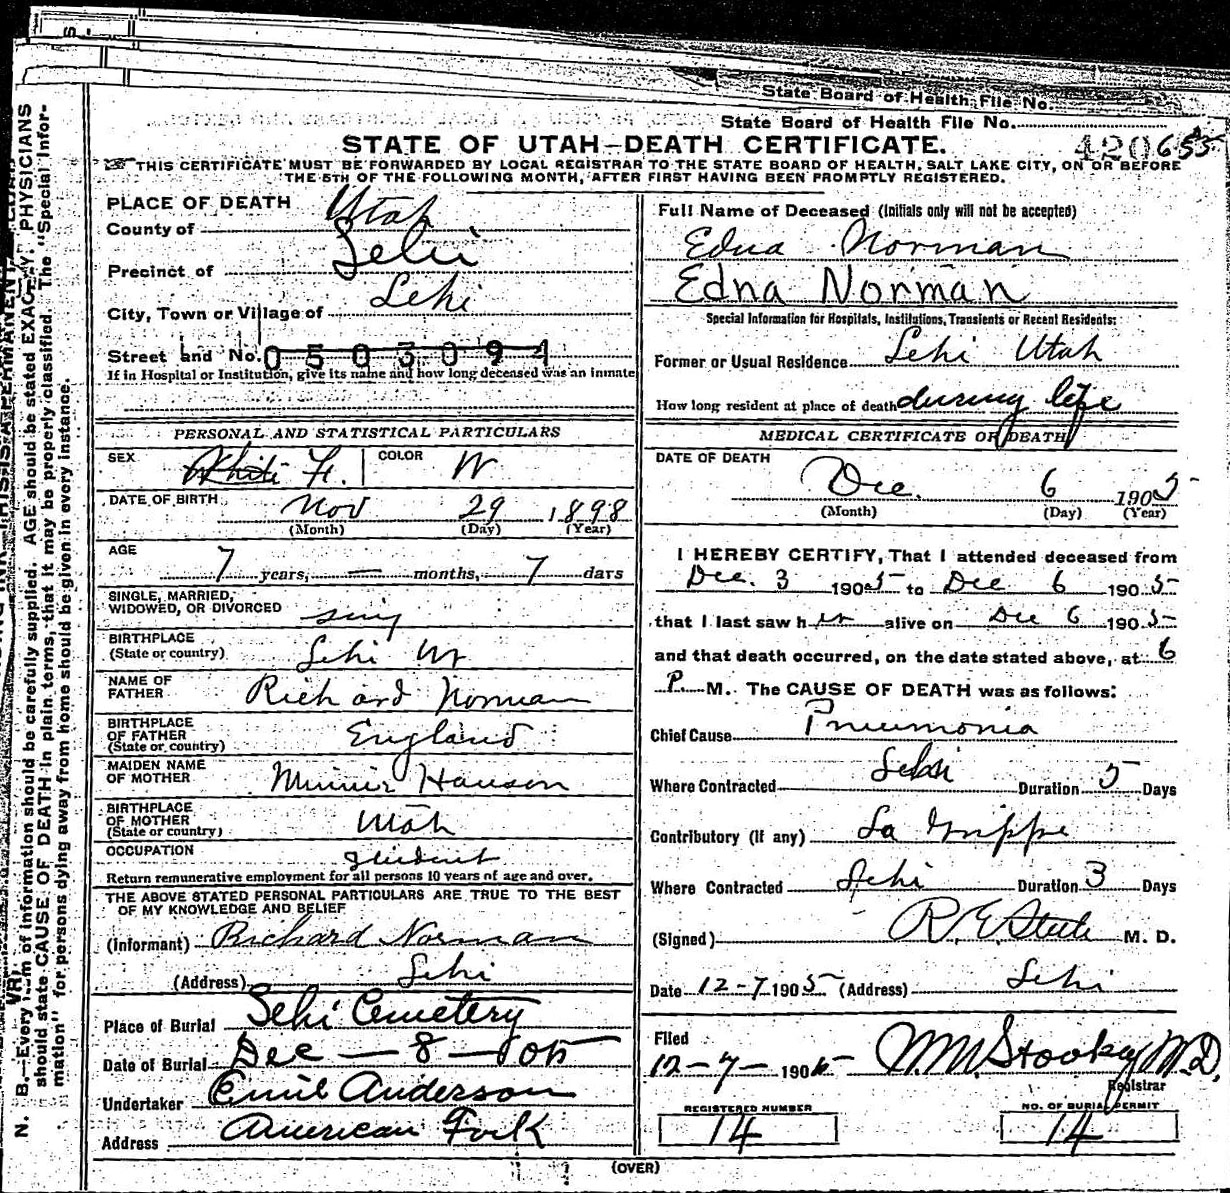 State Board of Health File No.
State Board of Health File No. 420 655
STATE OF UTAH—DEATH CERTIFICATE.
THIS CERTIFICATE MUST BE FORWARDED BY LOCAL REGISTRAR TO THE STATE BOARD OF HEALTH, SALT LAKE CITY, ON OR BEFORE
THE 5TH OF THE FOLLOWING MONTH, AFTER FIRST HAVING BEEN PROMPTLY REGISTERED.
PLACE OF DEATH
County of Utah
Precinct of Lehi
City, Town or Village of Lehi
Street and No. 0503094
If in Hospital or Institution, give its name and how long deceased was an inmate
PERSONAL AND STATISTICAL PARTICULARS
SEX White F. COLOR W
DATE OF BIRTH Nov 29 1898
(Month) (Day) (Year)
AGE 7 years, — months, 7 days
SINGLE, MARRIED,
WIDOWED, OR DIVORCED sing
BIRTHPLACE
(State or country) Lehi Ut
NAME OF
FATHER Richard Norman
BIRTHPLACE
OF FATHER
(State or country) England
MAIDEN NAME
OF MOTHER Minnie Hanson
BIRTHPLACE
OF MOTHER
(State or country) Utah
OCCUPATION Student
Return remunerative employment for all persons 10 years of age and over.
THE ABOVE STATED PERSONAL PARTICULARS ARE TRUE TO THE BEST
OF MY KNOWLEDGE AND BELIEF
(Informant) Richard Norman
(Address) Lehi
Place of Burial Lehi Cemetery
Date of Burial Dec — 8 — 05
Undertaker Emil Anderson
Address American Fork
Full Name of Deceased (Initials only will not be accepted)
Edna Norman
Edna Norman
Special Information for Hospitals, Institutions, Transients or Recent Residents:
Former or Usual Residence Lehi Utah
How long resident at place of death during life
MEDICAL CERTIFICATE OF DEATH
DATE OF DEATH
Dec. 6 1905
(Month) (Day) (Year)
I HEREBY CERTIFY, That I attended deceased from
Dec. 3 1905 to Dec 6 1905
that I last saw her alive on Dec 6 1905
and that death occurred, on the date stated above, at 6
P. M. The CAUSE OF DEATH was as follows:
Chief Cause Pneumonia
Where Contracted Lehi Duration 5 Days
Contributory (if any) La Grippe
Where Contracted Lehi Duration 3 Days
(Signed) R. E. Steele M. D.
Date 12-7 1905 (Address) Lehi
Filed
12-7- 1905 W.W. Stookey M.D,
Registrar
REGISTERED NUMBER
14
NO. OF BURIAL PERMIT
14
(OVER)
N. B.—Every item of information should be carefully supplied. AGE should be stated EXACTLY. PHYSICIANS
should state CAUSE OF DEATH in plain terms, that it may be properly classified. The "Special Infor-
mation" for persons dying away from home should be given in every instance.